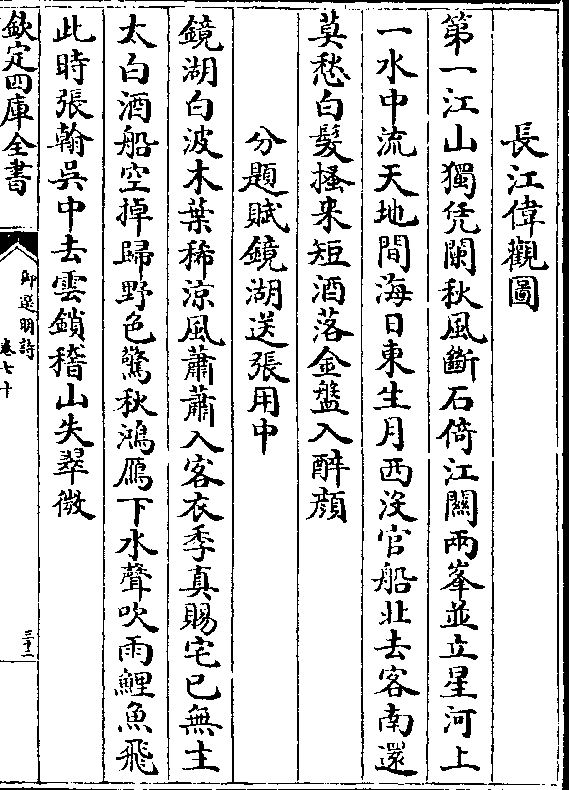 長江偉觀圖
第一江山獨凭闌秋風斷石倚江關兩峯並立星河上
一水中流天地間海日東生月西沒官船北去客南還
莫愁白髮搔來短酒落金盤入醉顔
分題賦鏡湖送張用中
鏡湖白波木葉稀涼風蕭蕭入客衣季真賜宅已無主
太白酒船空掉歸野色驚秋鴻鴈下水聲吹雨鯉魚飛
此時張翰吳中去雲鎖稽山失翠微
欽定四庫全書
御選明詩
卷七十
三十二